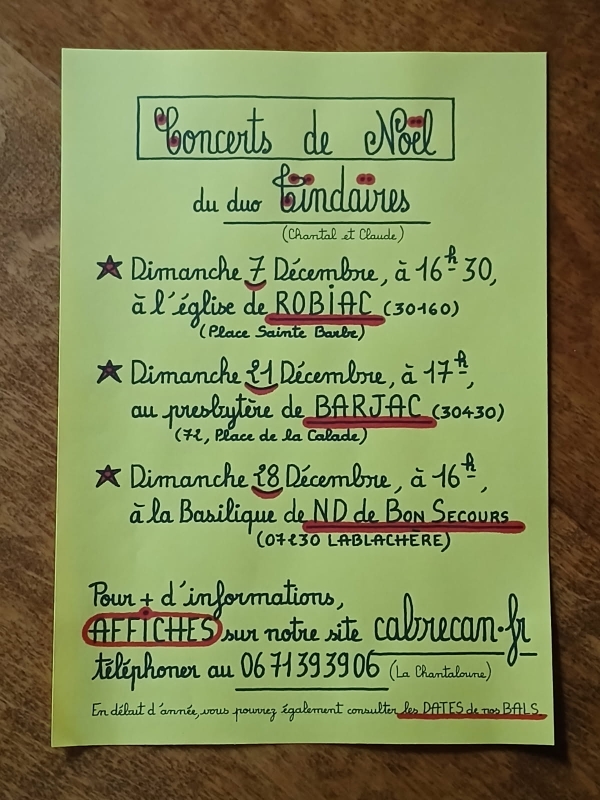 Concerts de Noël
du duo Tindaïres
(Chantal et Claude)
Dimanche 7 Décembre, à 16h30,
à l'église de ROBiAC (30160)
(Place Sainte Barbe)
Dimanche 21 Décembre, à 17h,
au presbytère de BARJAC (30430)
(72, Place de la Calade)
Dimanche 28 Décembre, à 16h,
à la Basilique de ND de BON SECOURS
(07230 LABLACHÈRE)
Pour + d'informations,
AFFiCHES sur notre site cabrecan.fr
téléphoner au 0671393906 (La Chantaloune)
En début d'année, vous pourrez également consulter les DATES de nos BALS